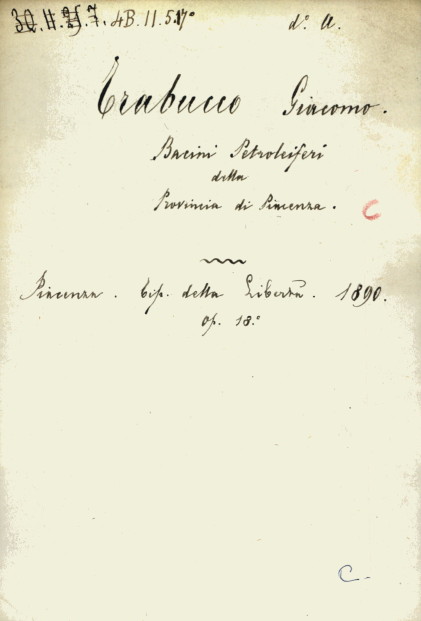 4B. 11. 5. 17° d°. A.
Trabucco Giacomo.
Bacini Petroleiferi
della
Provincia di Piacenza.
C
Piacenza. Tip. della Libertà. 1890.
op. 18.°
C.